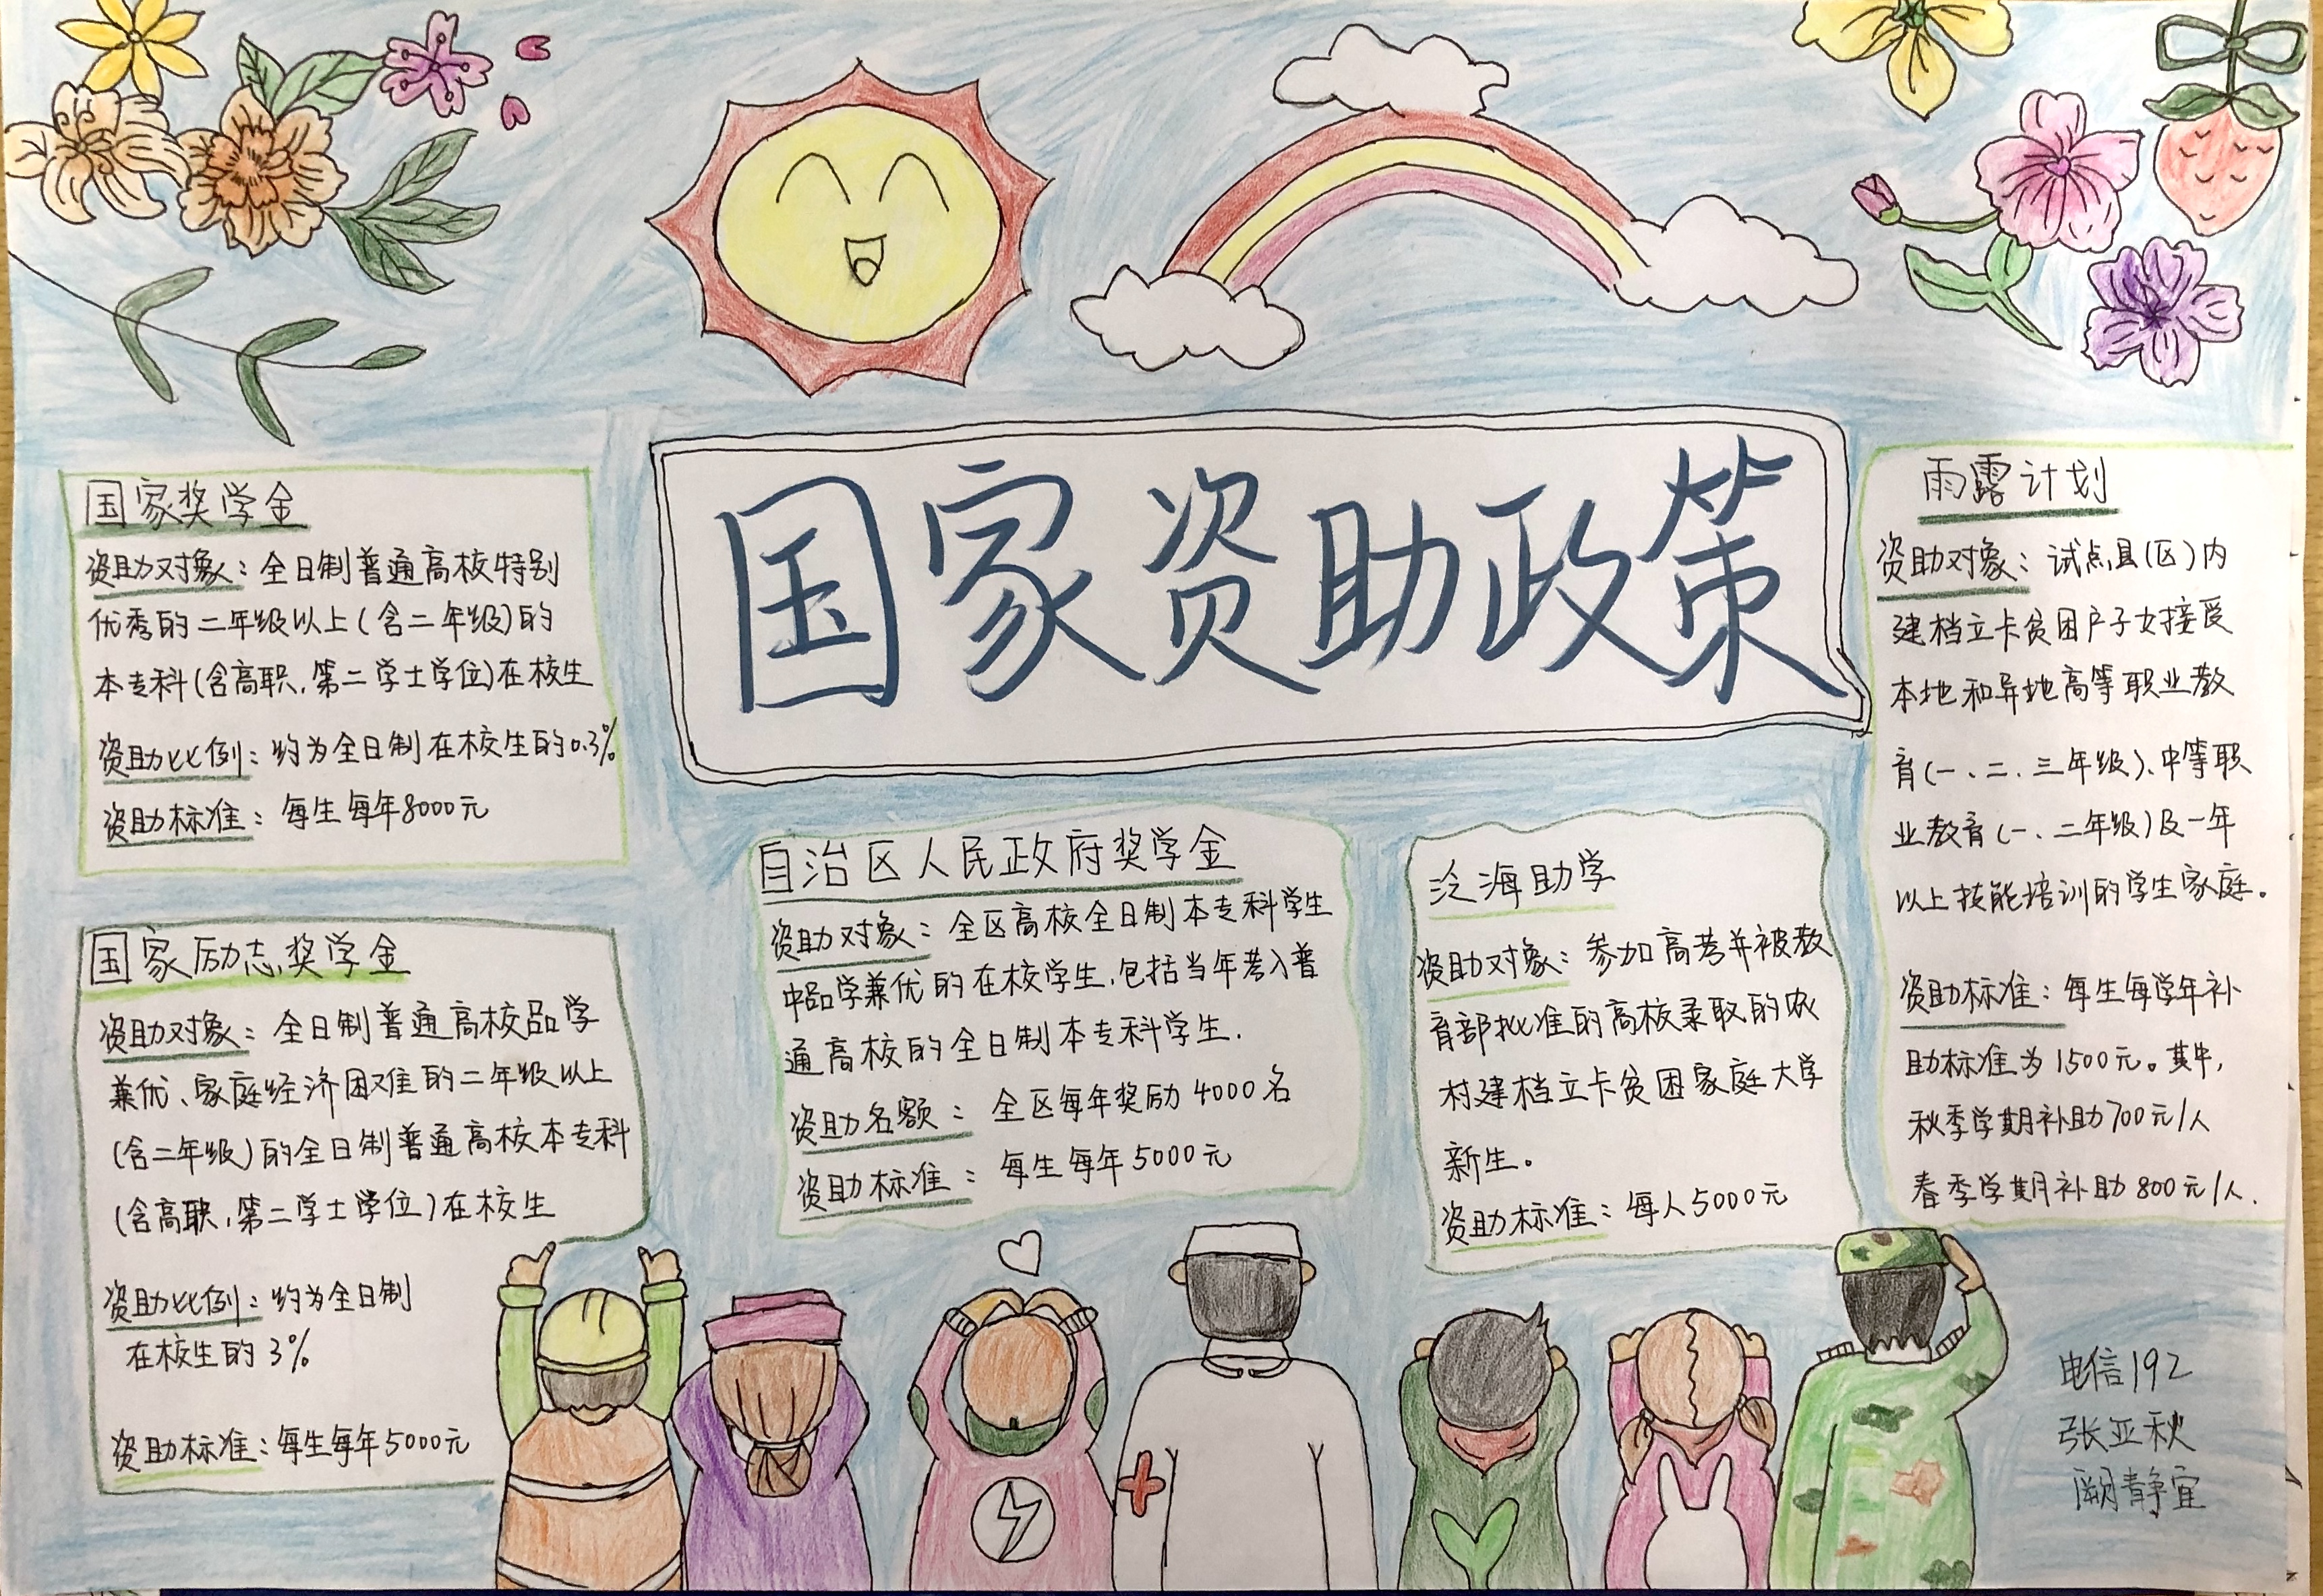 国家资助政策
国家奖学金
资助对象：全日制普通高校特别
优秀的二年级以上(含二年级)的
本专科(含高职,第二学士学位)在校生
资助比例：约为全日制在校生的0.3%
资助标准：每生每年8000元
国家励志奖学金
资助对象：全日制普通高校品学
兼优、家庭经济困难的二年级以上
(含二年级)的全日制普通高校本专科
(含高职,第二学士学位)在校生
资助比例：约为全日制
在校生的3%
资助标准：每生每年5000元
自治区人民政府奖学金
资助对象：全区高校全日制本专科学生
中品学兼优的在校学生,包括当年考入普
通高校的全日制本专科学生.
资助名额：全区每年奖励4000名
资助标准：每生每年5000元
泛海助学
资助对象：参加高考并被教
育部批准的高校录取的农
村建档立卡贫困家庭大学
新生。
资助标准：每人5000元
雨露计划
资助对象：试点县(区)内
建档立卡贫困户子女接受
本地和异地高等职业教
育(一、二、三年级)、中等职
业教育(一、二年级)及一年
以上技能培训的学生家庭。
资助标准：每生每学年补
助标准为1500元。其中,
秋季学期补助700元/人
春季学期补助800元/人.
电信192
张亚秋
阙静宜